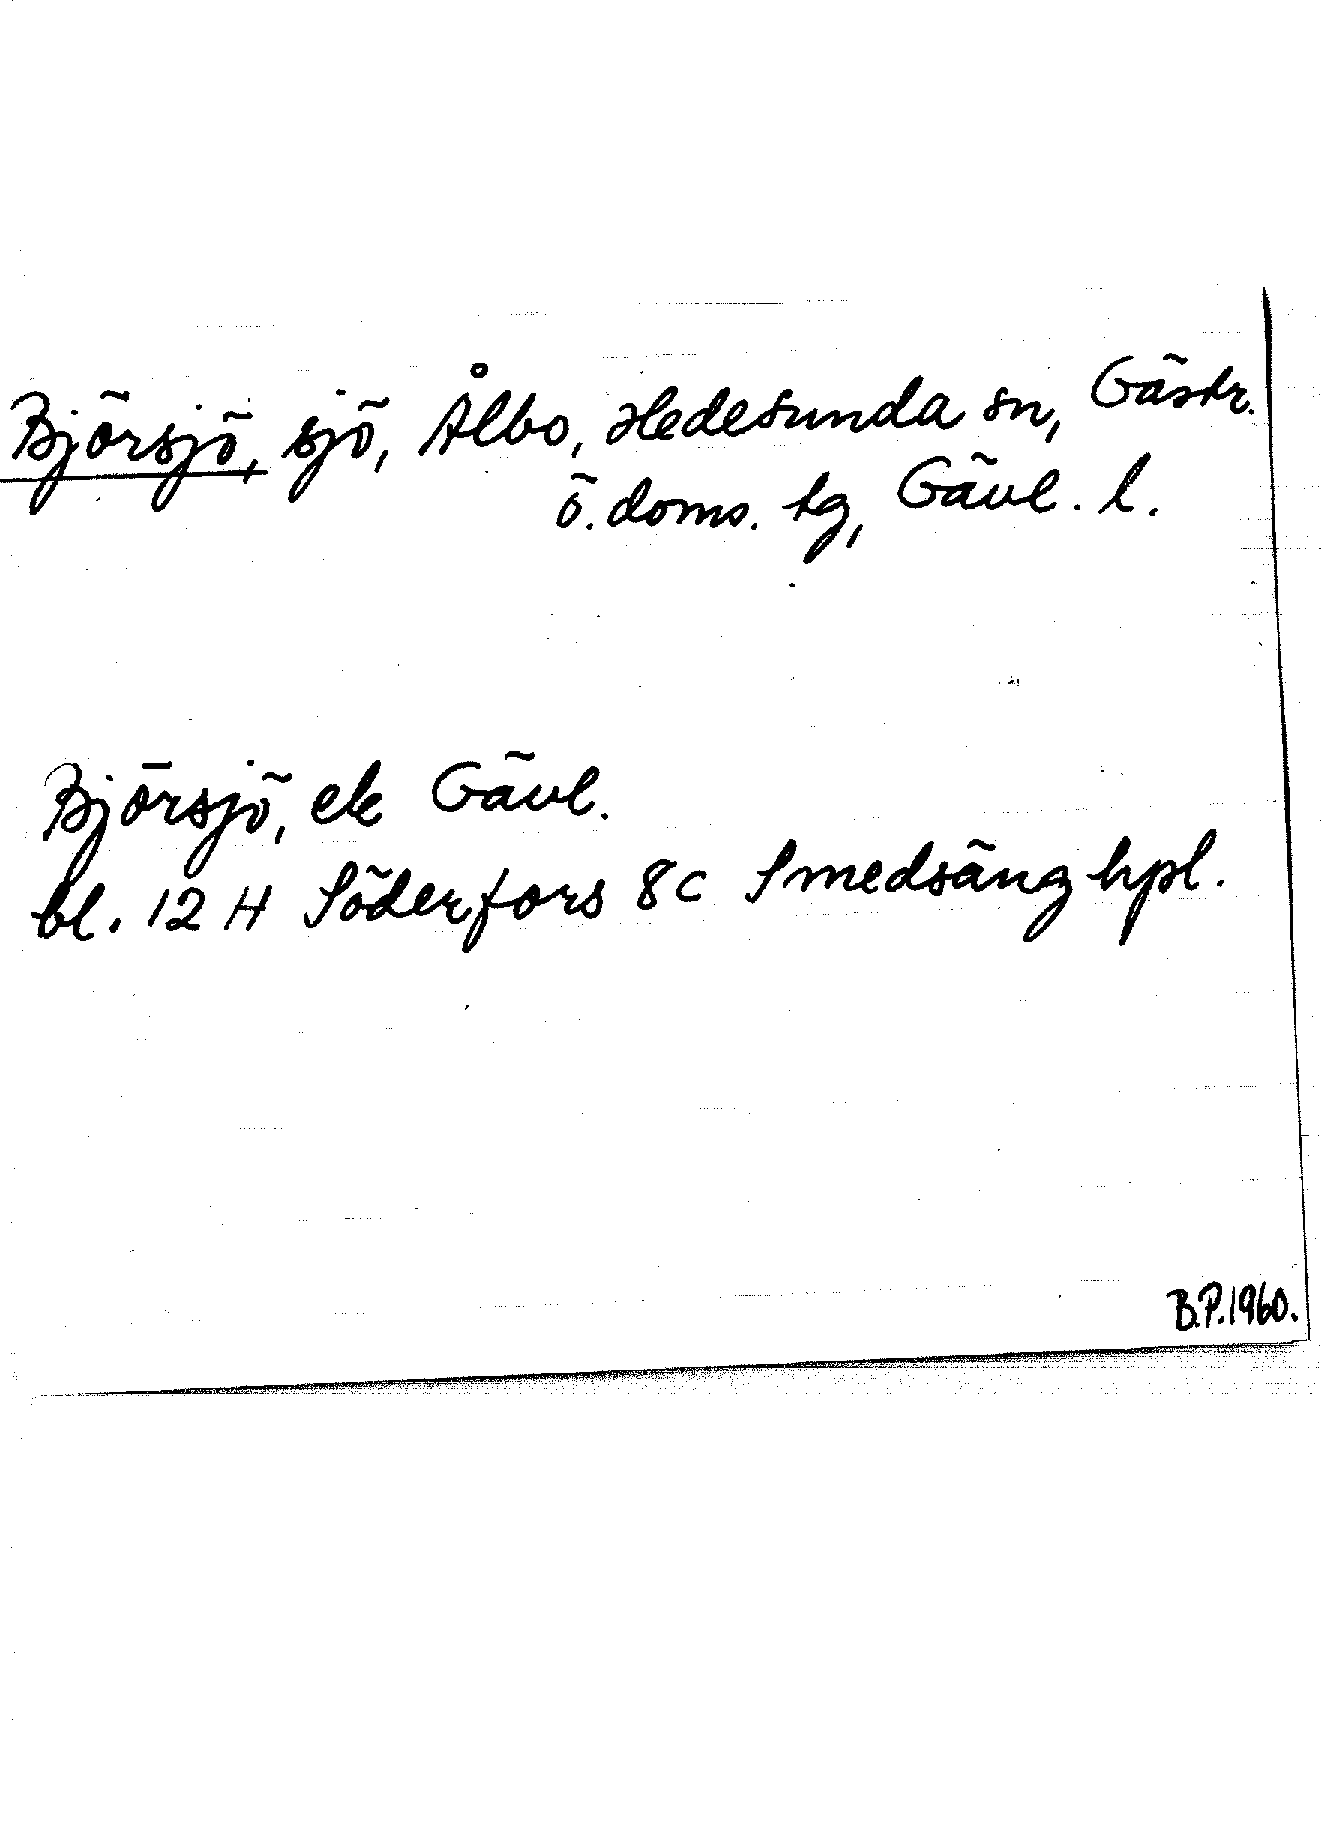 Björsjö, sjö, Ålbo, Hedesunda sn, Gästr.
ö. doms. tg, Gävl. l.
Björsjö, ek Gävl.
bl. 12 H Söderfors 8c Smedsäng hpl.
B.P.1960.